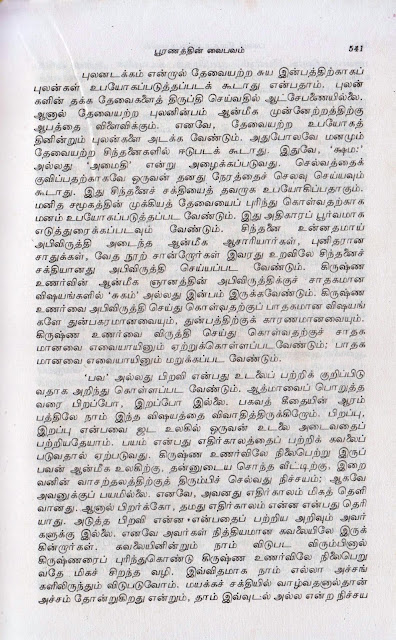 பூரணத்தின் வைபவம் 541
புலனடக்கம் என்றால் தேவையற்ற சுய இன்பத்திற்காகப்
புலன்கள் உபயோகப்படுத்தப்படக் கூடாது என்பதாம். புலன்
களின் தக்க தேவைகளைத் திருப்தி செய்வதில் ஆட்சேபணையில்லை.
ஆனால் தேவையற்ற புலனின்பம் ஆன்மீக முன்னேற்றத்திற்கு
ஆபத்தை விளைவிக்கும். எனவே, தேவையற்ற உபயோகத்
தினின்றும் புலன்களை அடக்க வேண்டும். அதுபோலவே மனமும்
தேவையற்ற சிந்தனைகளில் ஈடுபடக் கூடாது. இதுவே, 'க்ஷம:'
அல்லது 'அமைதி' என்று அழைக்கப்படுவது. செல்வத்தைக்
குவிப்பதற்காகவே ஒருவன் தனது நேரத்தைச் செலவு செய்யவும்
கூடாது. இது சிந்தனைச் சக்தியைத் தவறாக உபயோகிப்பதாகும்.
மனித சமூகத்தின் முக்கியத் தேவையைப் புரிந்து கொள்வதற்காக
மனம் உபயோகப்படுத்தப்பட வேண்டும். இது அதிகாரப் பூர்வமாக
எடுத்துரைக்கப்படவும் வேண்டும். சிந்தனை உன்னதமாய்
அபிவிருத்தி அடைந்த ஆன்மீக ஆசாரியார்கள், புனிதரான
சாதுக்கள், வேத நூற் சான்றோர்கள் இவரது உறவிலே சிந்தனைச்
சக்தியானது அபிவிருத்தி செய்யப்பட வேண்டும். கிருஷ்ண
உணர்வின் ஆன்மீக ஞானத்தின் அபிவிருத்திக்குச் சாதகமான
விஷயங்களில் 'சுகம்' அல்லது இன்பம் இருக்கவேண்டும். கிருஷ்ண
உணர்வை அபிவிருத்தி செய்து கொள்வதற்குப் பாதகமான விஷயங்
களே துன்பகரமானவையும், துன்பத்திற்குக் காரணமானவையும்.
கிருஷ்ண உணர்வை விருத்தி செய்து கொள்வதற்குச் சாதக
மானவை எவையாயினும் ஏற்றுக்கொள்ளப்படவேண்டும்; பாதக
மானவை எவையாயினும் மறுக்கப்பட வேண்டும்.
'பவ' அல்லது பிறவி என்பது உடலைப் பற்றிக் குறிப்பிடு
வதாக அறிந்து கொள்ளப்பட வேண்டும். ஆத்மாவைப் பொறுத்த
வரை பிறப்போ, இறப்போ இல்லை. பகவத் கீதையின் ஆரம்
பத்திலே நாம் இந்த விஷயத்தை விவாதித்திருக்கிறோம். பிறப்பு,
இறப்பு என்பவை ஜட உலகில் ஒருவன் உடலை அடைவதைப்
பற்றியதேயாம். பயம் என்பது எதிர்காலத்தைப் பற்றிக் கவலைப்
படுவதால் ஏற்படுவது. கிருஷ்ண உணர்விலே நிலைபெற்று இருப்
பவன் ஆன்மீக உலகிற்கு, தன்னுடைய சொந்த வீட்டிற்கு, இறை
வனின் வாசற்தலத்திற்குத் திரும்பிச் செல்வது நிச்சயம்; ஆகவே
அவனுக்குப் பயமில்லை. எனவே, அவனது எதிர்காலம் மிகத் தெளி
வானது. ஆனால் பிறர்க்கோ, தமது எதிர்காலம் என்ன என்பது தெரி
யாது. அடுத்த பிறவி என்ன என்பதைப் பற்றிய அறிவும் அவர்
களுக்கு இல்லை. எனவே அவர்கள் நித்தியமான கவலையிலே இருக்
கின்றார்கள். கவலையினின்றும் நாம் விடுபட விரும்பினால்
கிருஷ்ணரைப் புரிந்துகொண்டு கிருஷ்ண உணர்விலே நிலைபெறு
வதே மிகச் சிறந்த வழி. இவ்விதமாக நாம் எல்லா அச்சங்
களிலிருந்தும் விடுபடுவோம். மயக்கச் சக்தியில் வாழ்வதனால்தான்
அச்சம் தோன்றுகிறது என்றும், தாம் இவ்வுடல் அல்ல என்ற நிச்சய